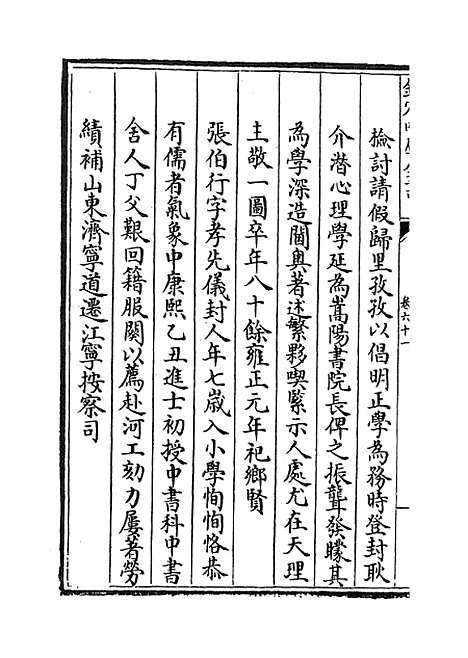 檢討請假歸里孜孜以倡明正學為務時登封耿
介潛心理學延為嵩陽書院長俾之振聾發矇其
為學深造閫奧著述繁夥喫緊示人處尤在天理
主敬一圖卒年八十餘雍正元年祀鄉賢
張伯行字孝先儀封人年七歲入小學恂恂恪恭
有儒者氣象中康熙乙丑進士初授中書科中書
舍人丁父艱回籍服闋以薦赴河工効力屢著勞
績補山東濟寧道遷江寧按察司
卷六十一